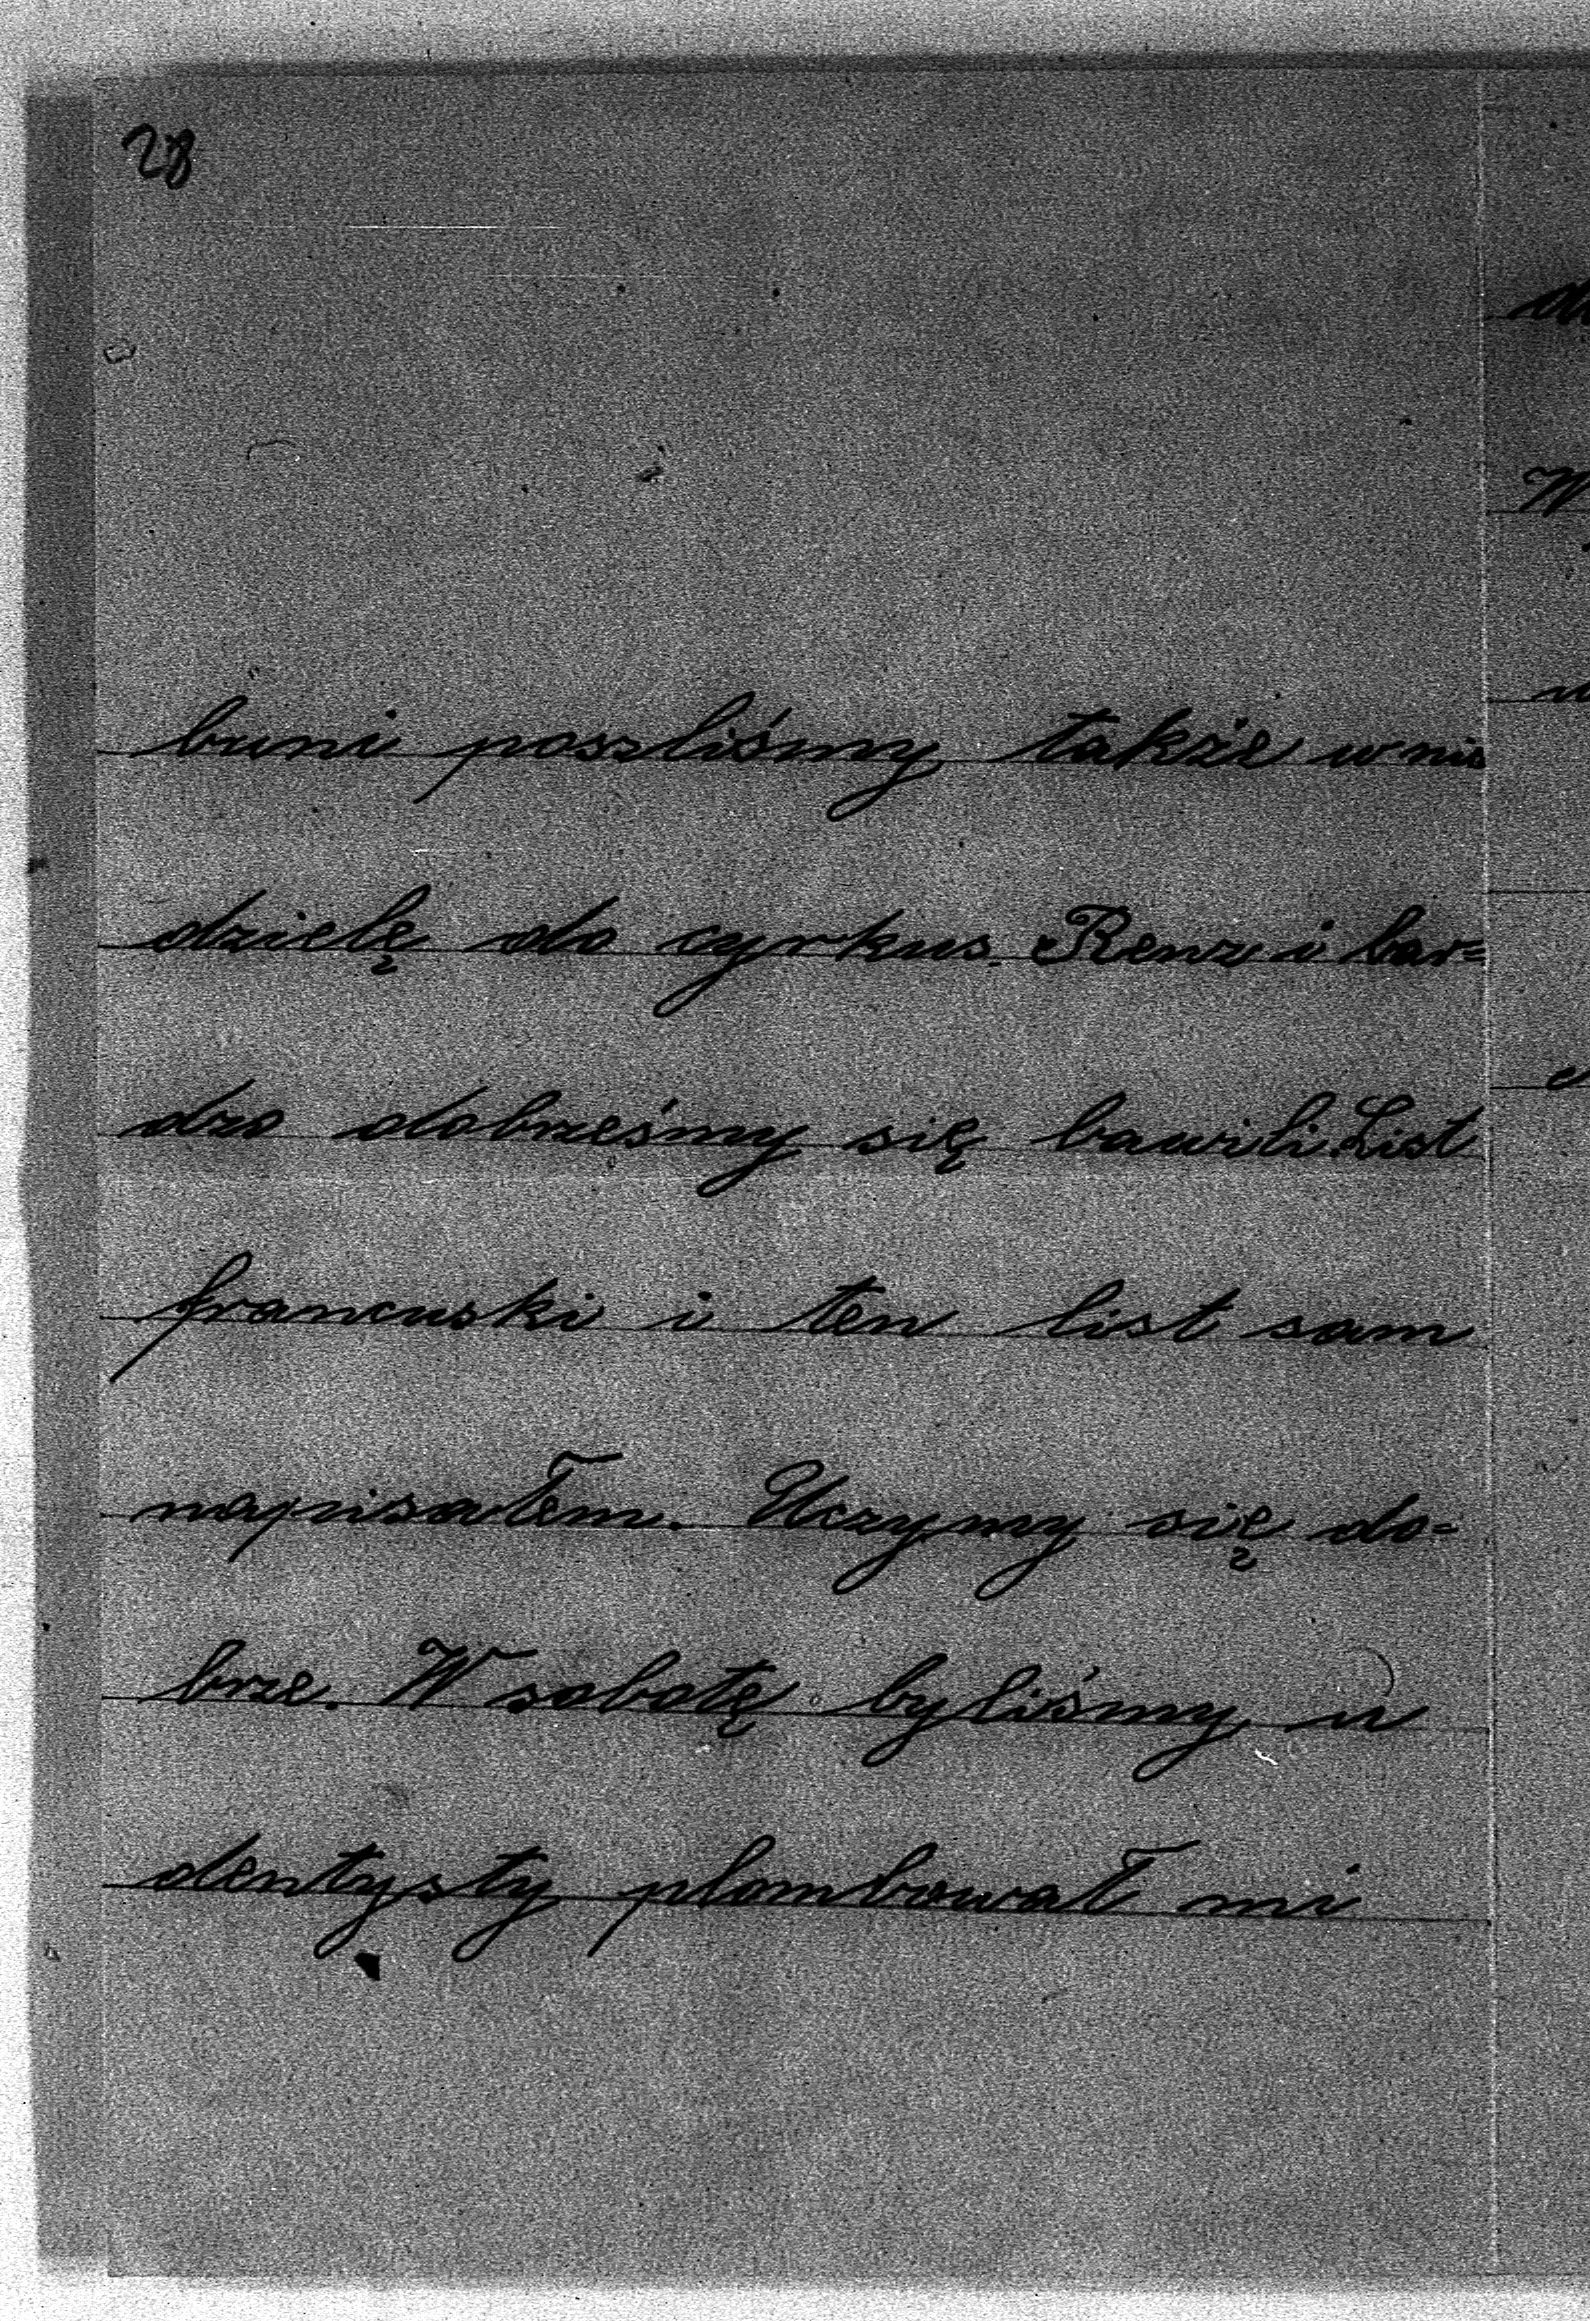 28
buni poszliśmy także w nie
dzielę do cyrkus. Renz i bar=
dzo dobrześmy się bawili. List
francuski i ten list sam
napisałem. Uczymy się do=
brze. W sobotę byliśmy u
dentysty plombował mi